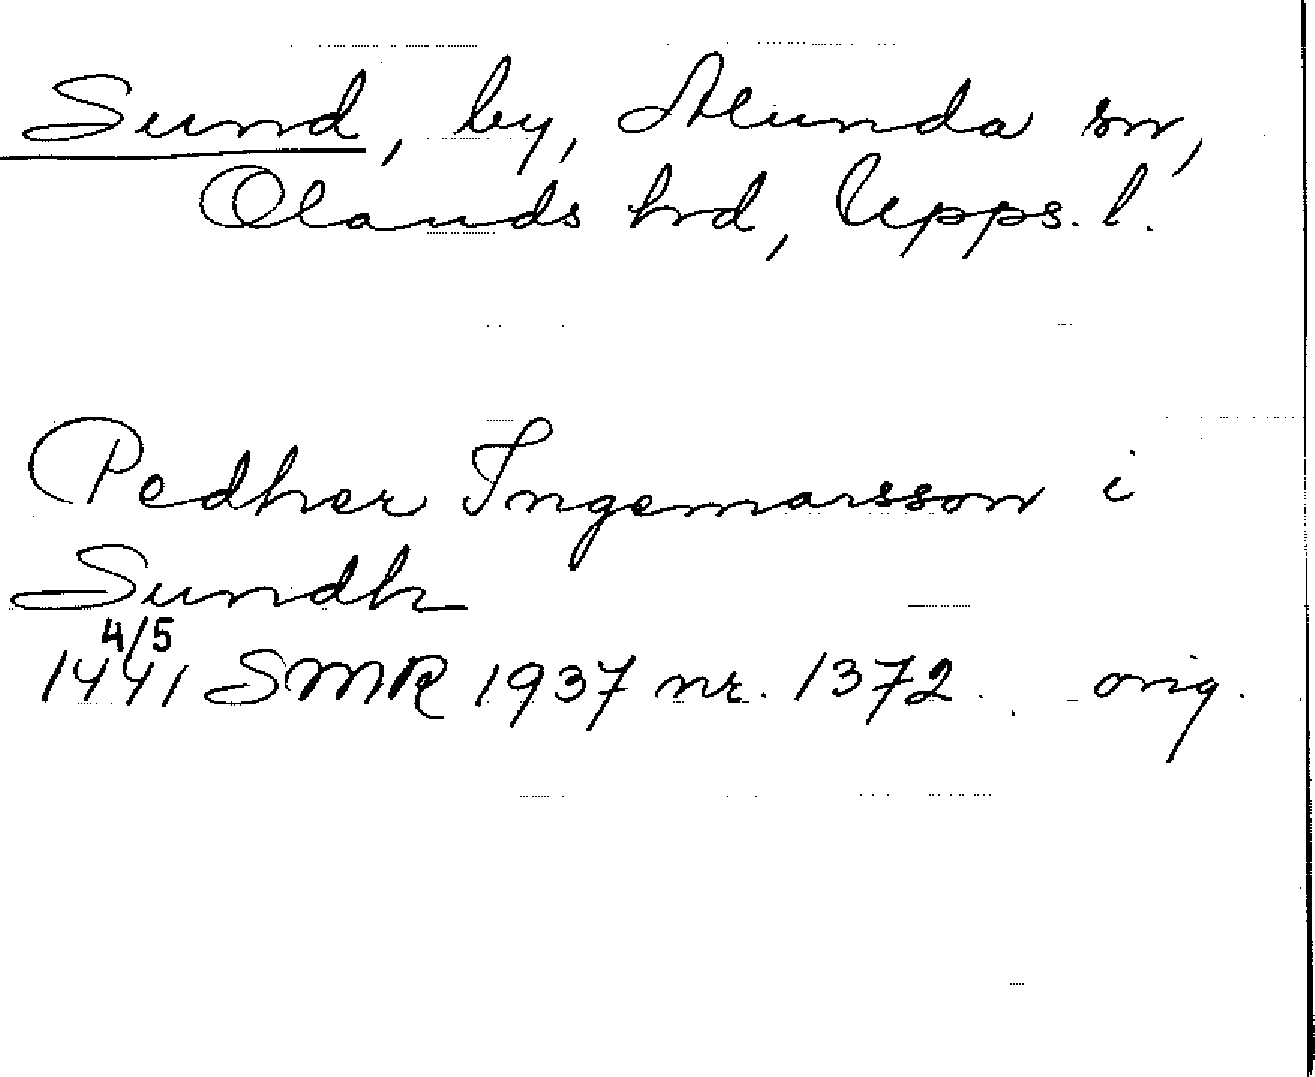 Sund, by, Alunda sn,
Olands hrd, Upps. l.
Pedher Ingemarsson i
Sundh
4/5
1441 SMR 1937 nr. 1372. orig.